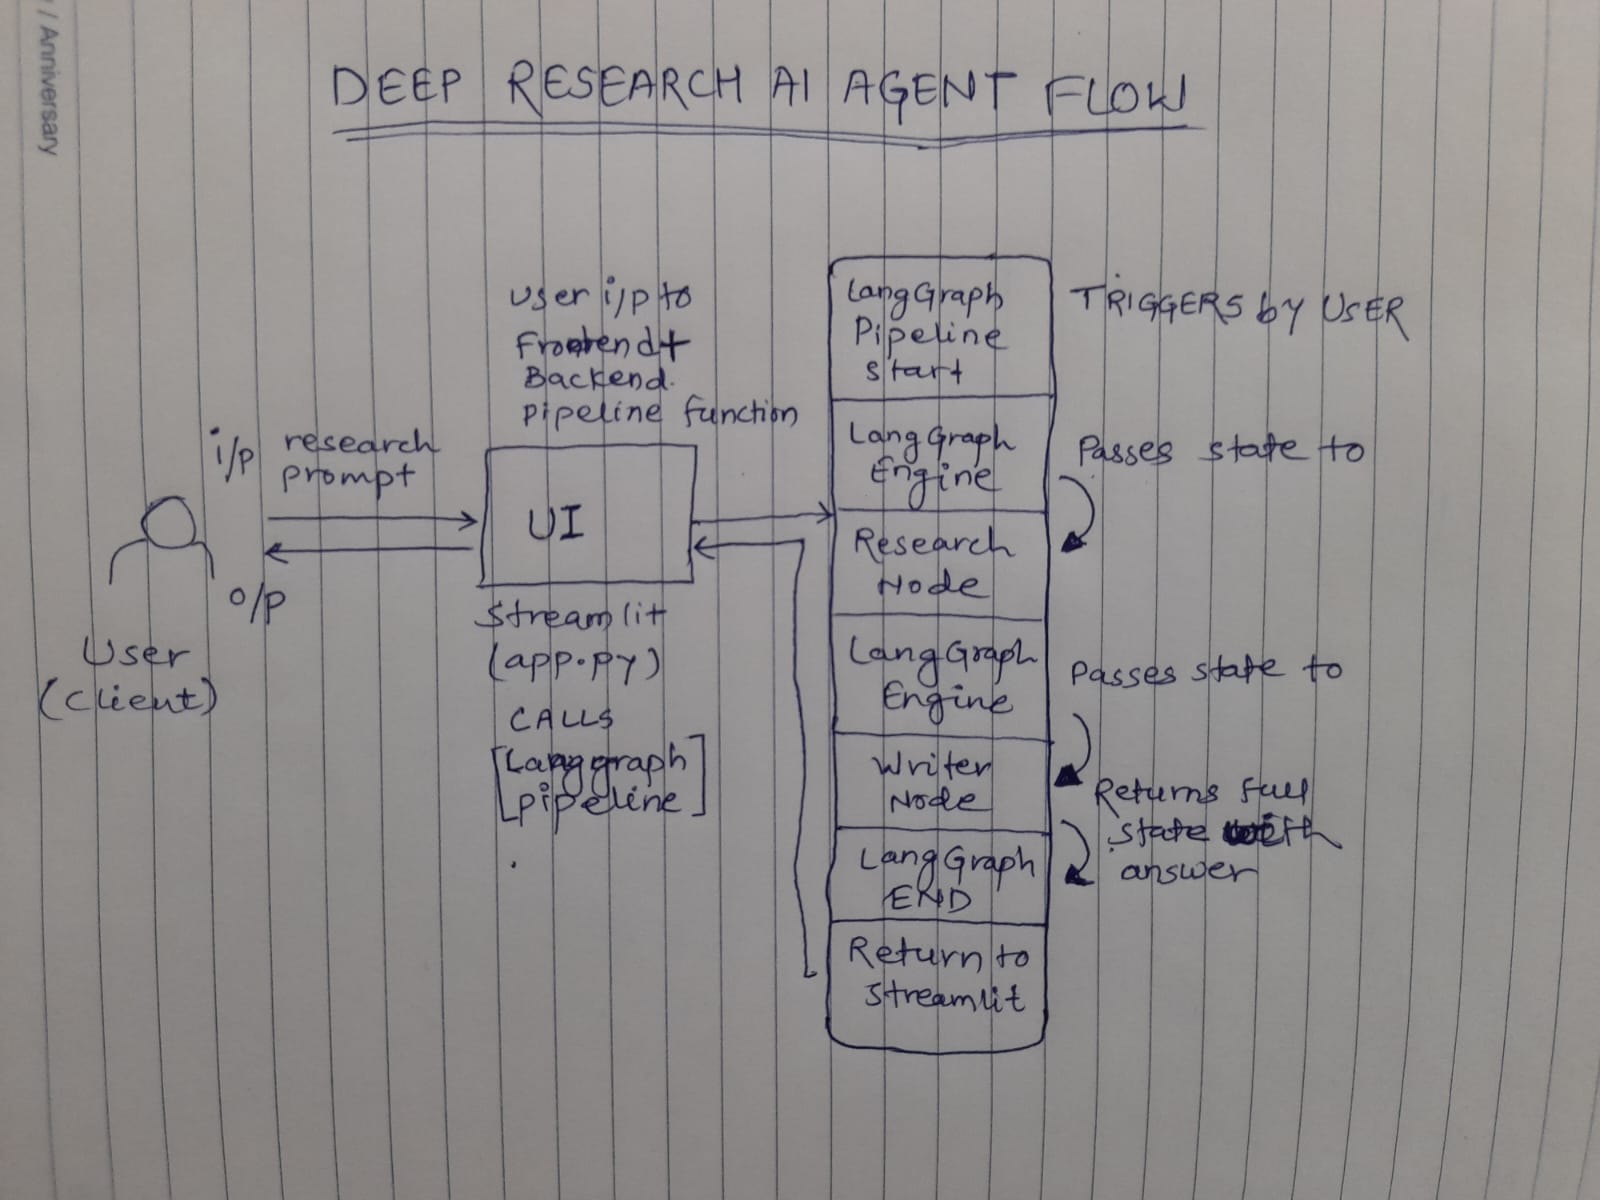 / Anniversary
DEEP RESEARCH AI AGENT FLOW
i/p research
prompt
o/p
User
(Client)
User i/p to
Frontend+
Backend.
pipeline function
UI
Streamlit
(app.py)
CALLS
[Langgraph
pipeline]
LangGraph
Pipeline
Start
TRIGGERS by USER
LangGraph
Engine
Passes state to
Research
Node
LangGraph
Engine
Passes state to
Writer
Node
Returns full
state with
answer
LangGraph
END
Return to
Streamlit